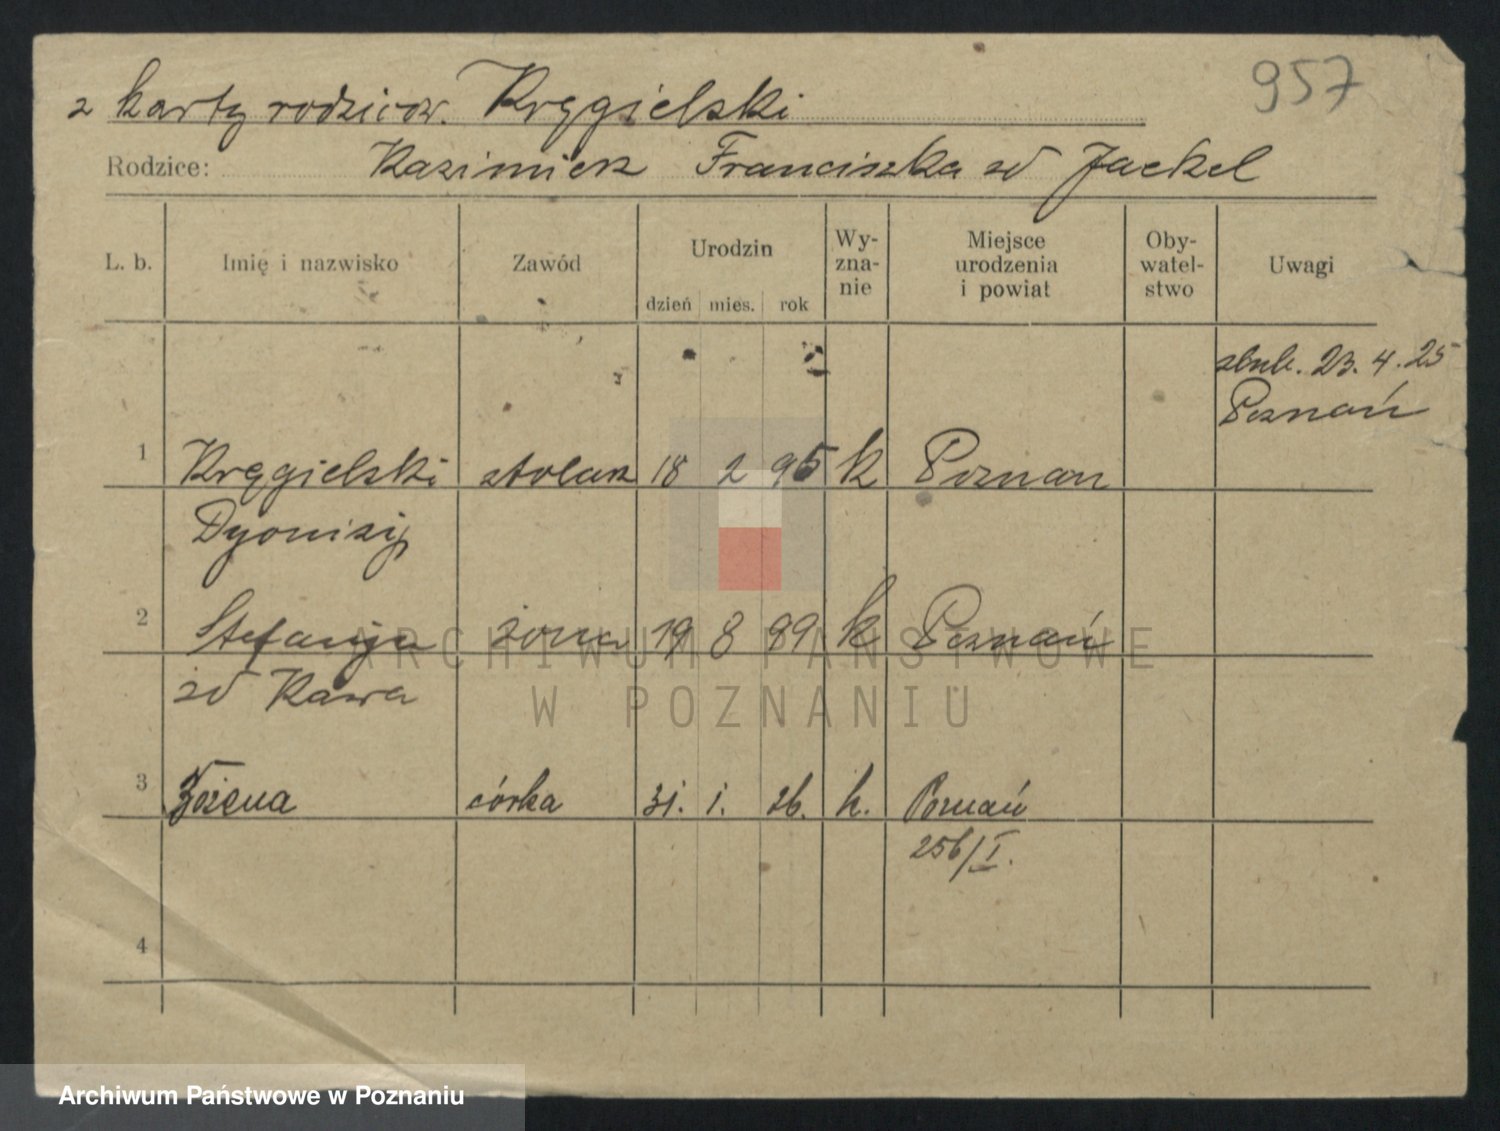 957
z karty rodziców. Kręgielski
Rodzice: Kazimierz Franciszka zd Jaekel
L. b. Imię i nazwisko Zawód Urodzin dzień mies. rok Wy-zna-nie Miejsce urodzenia i powiat Oby-watel-stwo Uwagi
23. 4. 25
Poznań
1 Kręgielski stolarz 18 2 95 k Poznan
Dyonizy
2 Stefanja żona 19 8 99 k Poznań
zd Kawa
3 córka 31. 1. 26. k. Poznań
256/I.
4
ARCHIWUM PAŃSTWOWE
W POZNANIU
Archiwum Państwowe w Poznaniu